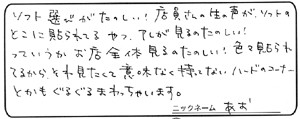 ソフト選びがたのしい!店員さんの生の声が、ソフトの
とこに貼られてるやつ、アレが見るのたのしい!
っていうかお店全体見るのたのしい!色々貼られ
てるから、それ見たくて意味なく持ってないハードのコーナー
とかもぐるぐるまわっちゃいます。
ニックネーム あお